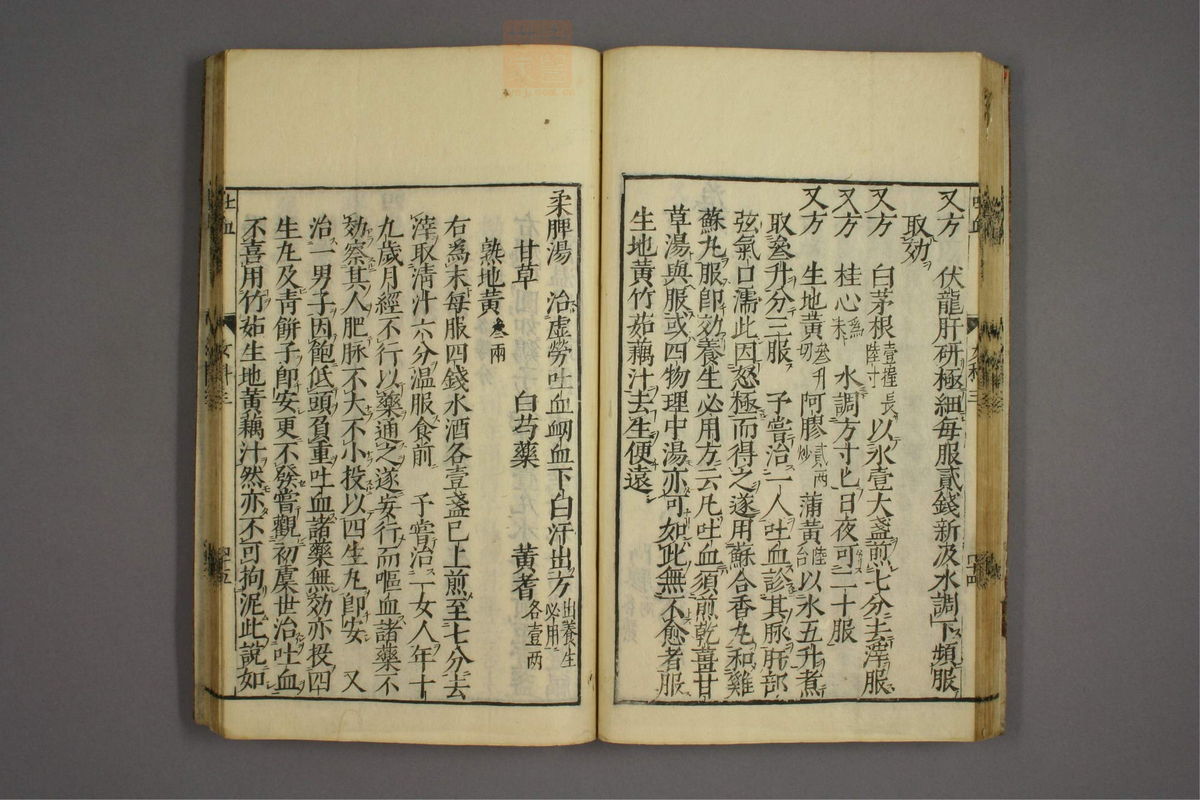 又方　伏龍肝研極細毎服貳錢新汲水調下頻服
取効
又方　白茅根壹握長陸寸以水壹大盞煎七分去滓服
又方　桂心爲末　水調方寸匕日夜可二十服
又方　生地黄叁升切　阿膠貳兩炒　蒲黄陸合以水五升煮
取叁升分三服　予嘗治一人吐血診其脉肝部
弦氣口濡此因怒極而得之遂用蘇合香丸和雞
蘇丸服即効養生必用方云凡吐血須煎乾薑甘
草湯與服或四物理中湯亦可如此無不愈者服
生地黄竹茹藕汁去生便遠
柔脾湯　治虚勞吐血衂血下白汗出方出養生必用
甘草　白芍藥　黄耆各壹兩
熟地黄叁兩
右爲末毎服四錢水酒各壹盞已上煎至七分去
滓取清汁六分温服食前　予嘗治一女人年十
九歳月經不行以藥通之遂安行而嘔血諸藥不
効察其人肥脉不大不小投以四生丸即安　又
治一男子因飽低頭負重吐血諸藥無効亦投四
生丸及青餅子即安更不發嘗觀初虞世治吐血
不喜用竹茹生地黄藕汁然亦不可拘泥此説如
吐血
四十五